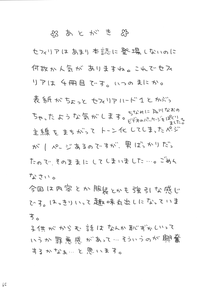 ☆ あとがき ☆
セフィリアはあまり本誌に登場しないのに
何故か人気がありますね。これでセフィ
リアは4冊目です。いつのまにか。
表紙がちょっとセフィリアハードさとかぶっ
ちゃったような気がします。
主線をまちがってトーン化してしまったページ
が1ページあるのですが、裏ばっかりだっ
たので、そのままにしてしまいました…。ごめん
なさい。
今回は内容とか服装とかも強引な感じ
です。はっきりいって趣味丸出しになっていま
す。
子供がからむ話はなんか恥ずかしいって
いうか罪悪感があって…そういうのが興奮
するかなぁ…と思います。